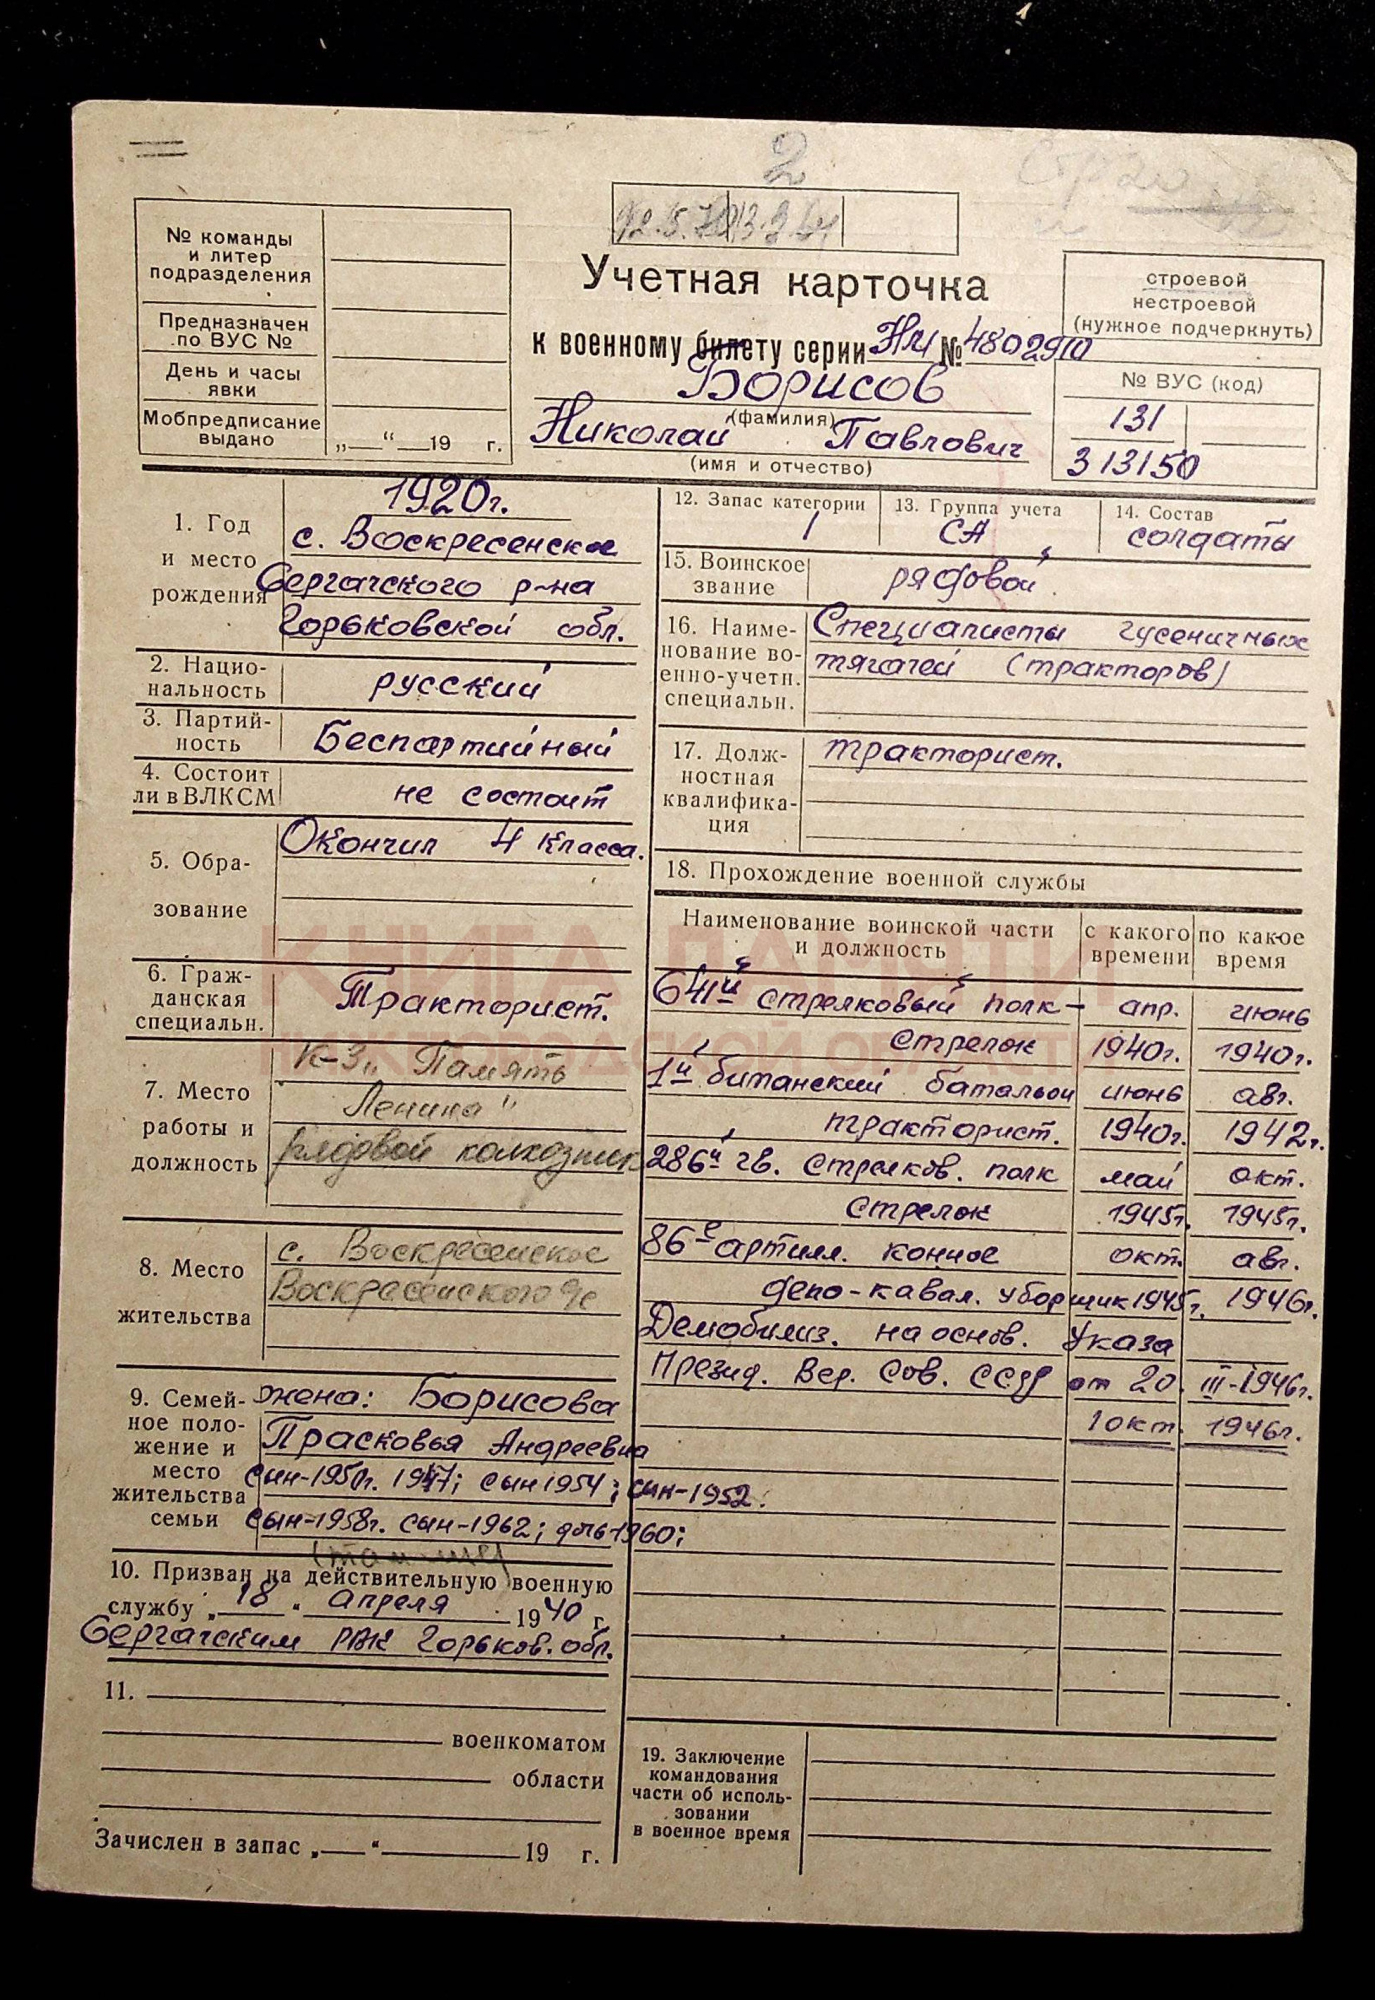 2
№ команды
и литер
подразделения
Предназначен
по ВУС №
День и часы
явки
Мобпредписание
выдано
„ “ 19 г.
Учетная карточка
к военному билету серии НЛ № 4802910
Борисов
(фамилия)
Николай Павлович
(имя и отчество)
строевой
нестроевой
(нужное подчеркнуть)
№ ВУС (код)
131
313150
1. Год
и место
рождения
1920г.
с. Воскресенское
Сергачского р-на
Горьковской обл.
2. Национальность
русский
3. Партийность
Беспартийный
4. Состоит
ли в ВЛКСМ
не состоит
5. Образование
Окончил 4 класса.
6. Гражданская
специальн.
Тракторист.
7. Место
работы и
должность
к-з „Память
Ленина"
рядовой колхозник
8. Место
жительства
с. Воскресенское
Воскресенского
9. Семейное положение и
место
жительства
семьи
жена: Борисова
Прасковья Андреевна
сын-1950г. 1947; сын 1954; сын-1952.
сын-1958г. сын-1962; дочь-1960;
10. Призван на действительную военную
службу „18“ апреля 1940 г.
Сергачским РВК Горьков. обл.
11.
военкоматом
области
Зачислен в запас „ “ 19 г.
12. Запас категории
1
13. Группа учета
СА
14. Состав
солдаты
15. Воинское
звание
рядовой
16. Наименование военно-учетн.
специальн.
Специалисты гусеничных
тягачей (тракторов)
17. Должностная
квалификация
тракторист.
18. Прохождение военной службы
Наименование воинской части
и должность
с какого
времени
по какое
время
641й стрелковый полк- апр. июнь
стрелок 1940г. 1940г.
1й батальон июнь авг.
тракторист. 1940г. 1942г.
286й гв. стрелков. полк май окт.
стрелок 1945г. 1945г.
86е артилл. конное окт. авг.
депо-кавал. уборщик 1945г. 1946г.
Демобилиз. на основ. Указа
Презид. Вер. Сов. СССР от 20. III-1946г.
1 окт. 1946г.
19. Заключение
командования
части об использовании
в военное время
КНИГА ПАМЯТИ
НИЖЕГОРОДСКОЙ ОБЛАСТИ